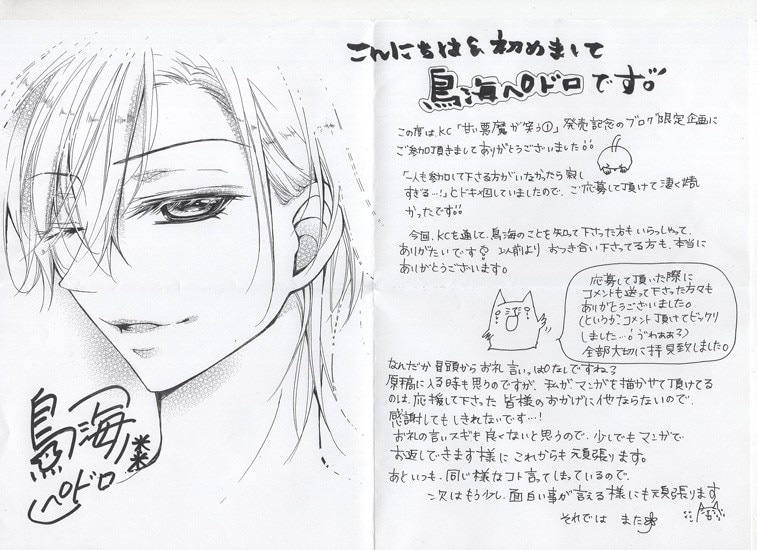 こんにちは&初めまして
鳥海ペドロです。
この度は、KC「甘い悪魔が笑う①」発売記念のブログ限定企画に
ご参加頂きましてありがとうございました!!
「一人も参加して下さる方がいなかったら寂し
すぎる…!」とドキドキ回していましたので、ご応募して頂けて凄く嬉し
かったです!!
今回、KCを通して、鳥海のことを知って下さった方もいらっしゃって、
ありがたいです 以前より おつき合い下さってる方も、本当に
ありがとうございます。
応募して頂いた際に
コメントも送って下さった方々も
ありがとうございました。
(というか、コメント頂けてビックリ
しました…!うわぁぁる)
全部大切に拝見致しました。
なんだか冒頭からお礼言いっぱなしですね?
原稿に入る時も思うのですが、私がマンガを描かせて頂けてる
のは、応援して下さった皆様のおかげに他ならないので、
感謝してもしきれないです…!
お礼の言いスギも良くないと思うので、少しでもマンガで
お返しできます様に これからも頑張ります。
あといつも、同じ様なコト言ってしまっているので、
次はもう少し、面白い事が言える様にも頑張ります
それでは また
鳥海
ペドロ